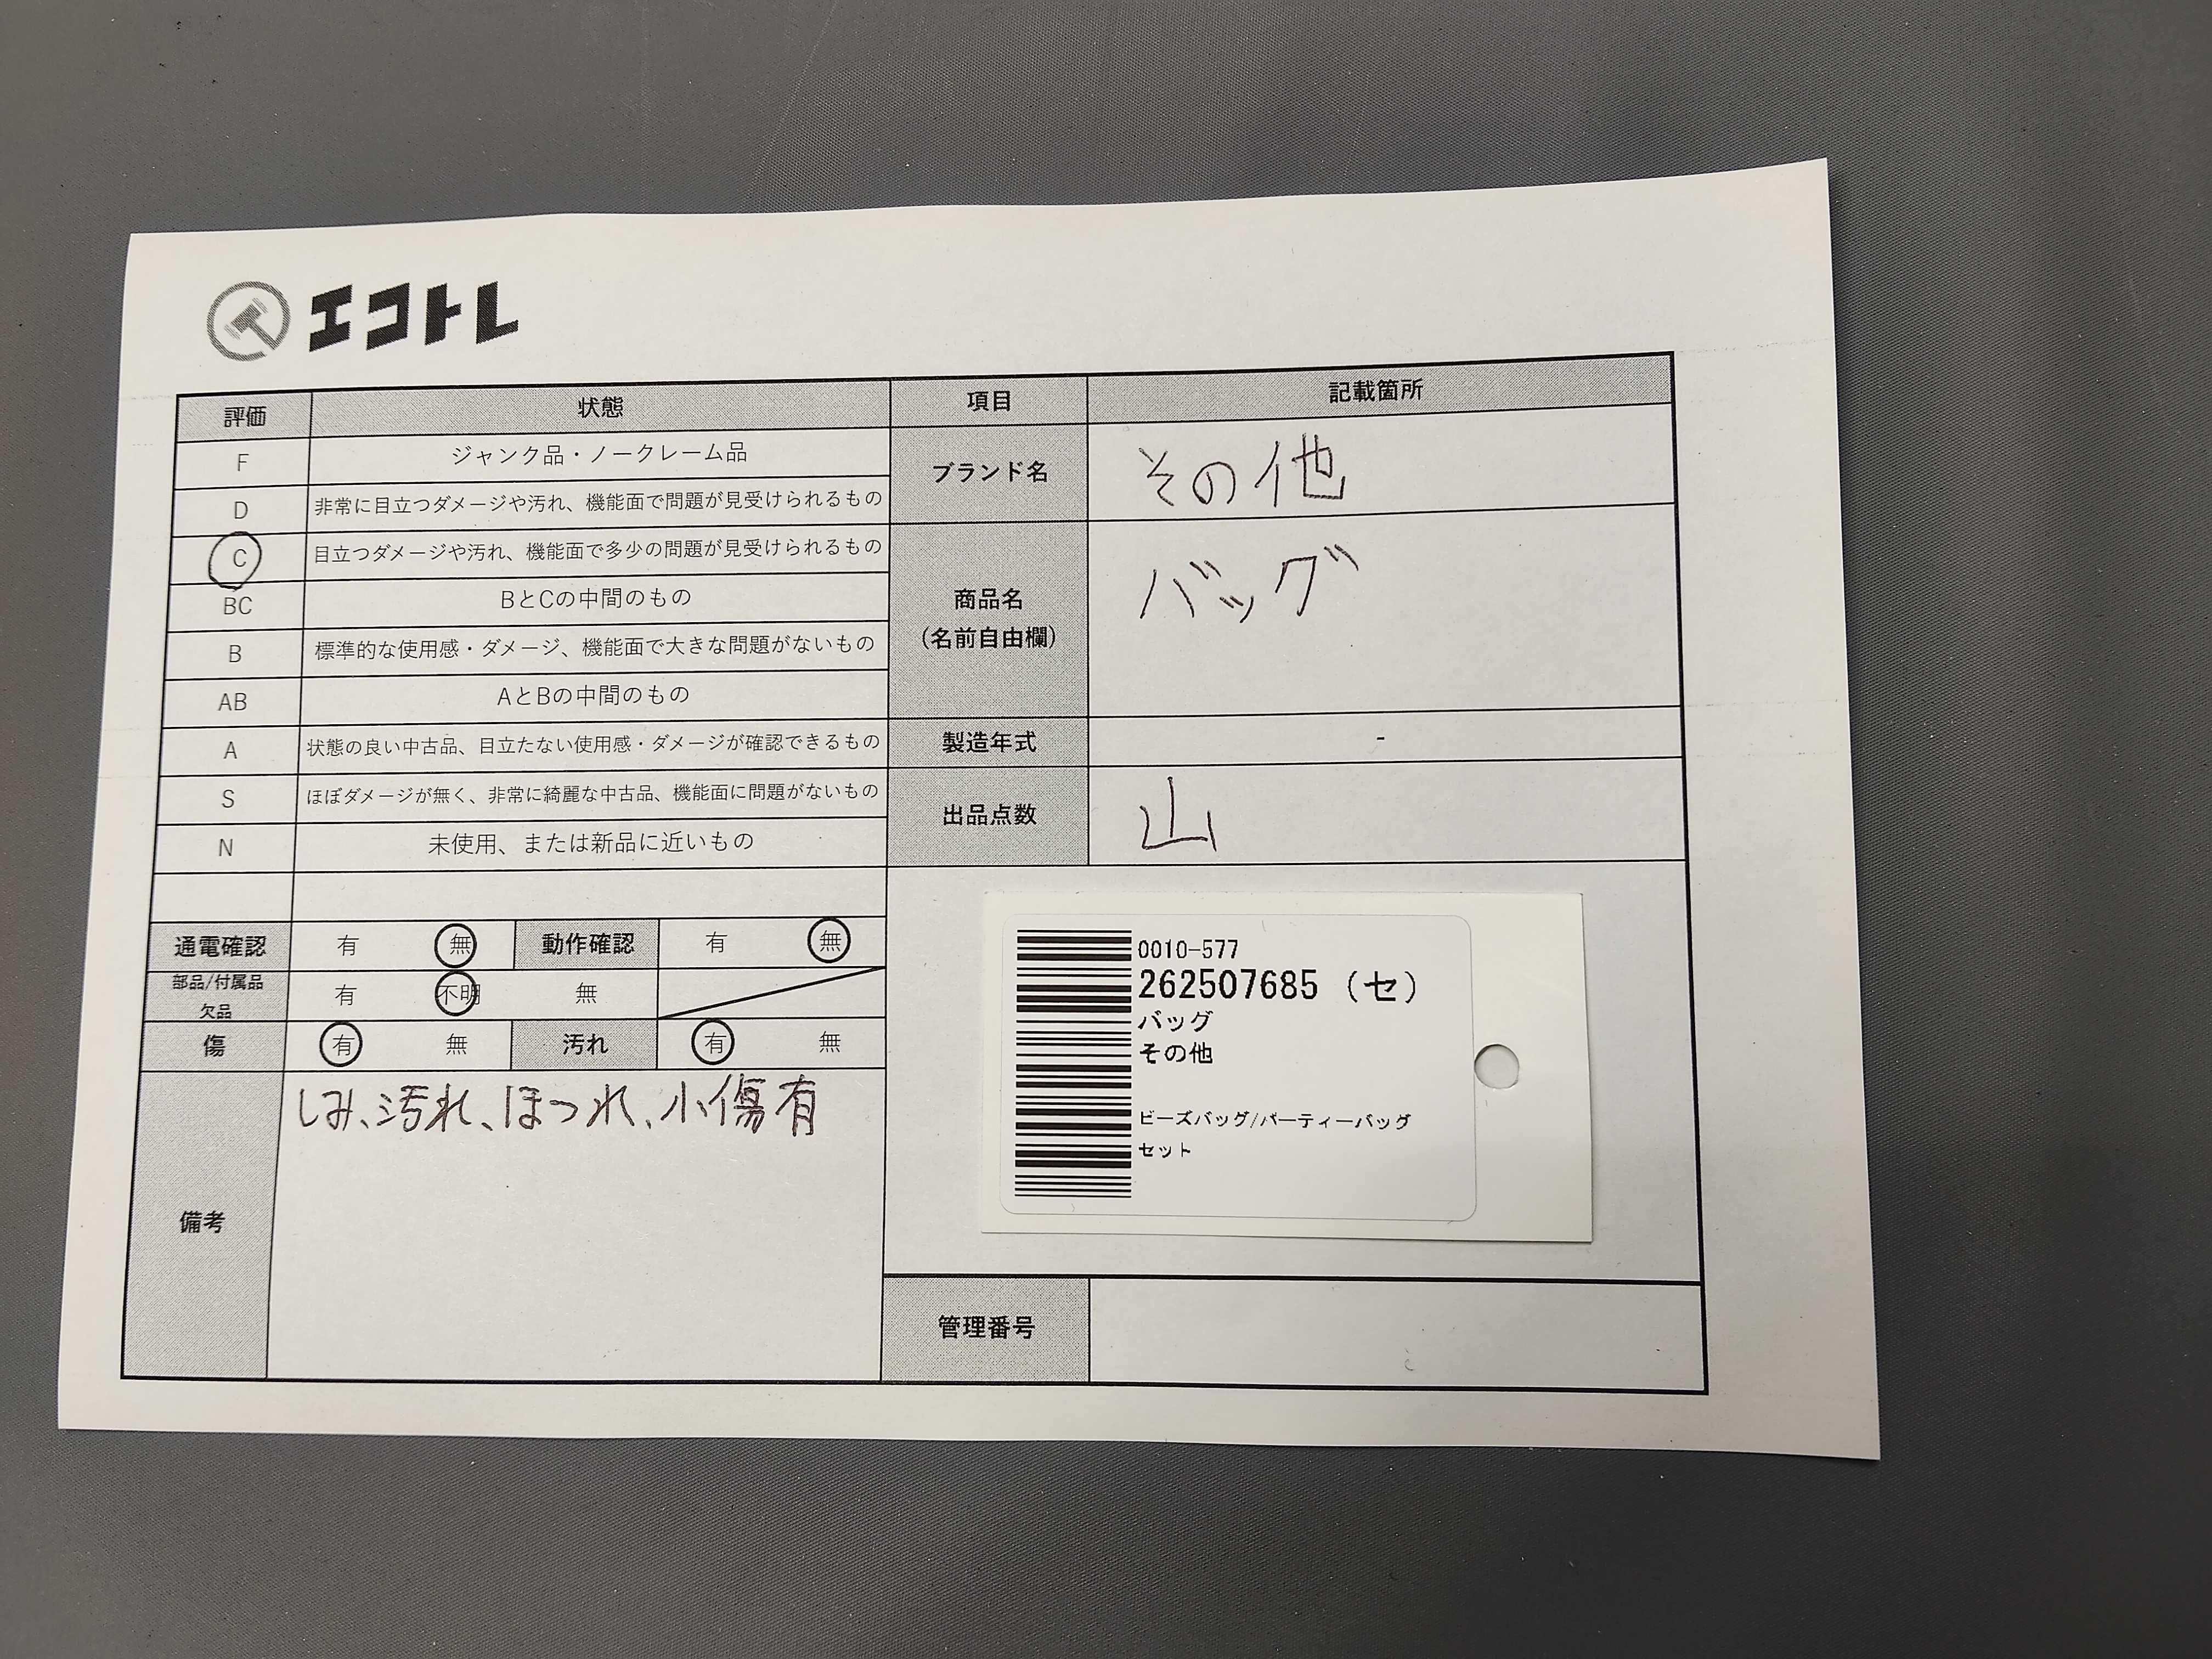 エコトレ
評価 状態 項目 記載箇所
F ジャンク品・ノークレーム品
D 非常に目立つダメージや汚れ、機能面で問題が見受けられるもの
C 目立つダメージや汚れ、機能面で多少の問題が見受けられるもの
BC BとCの中間のもの
B 標準的な使用感・ダメージ、機能面で大きな問題がないもの
AB AとBの中間のもの
A 状態の良い中古品、目立たない使用感・ダメージが確認できるもの
S ほぼダメージが無く、非常に綺麗な中古品、機能面に問題がないもの
N 未使用、または新品に近いもの
ブランド名 その他
商品名 バッグ
(名前自由欄)
製造年式 -
出品点数 山
通電確認 有 無 動作確認 有 無
部品/付属品
欠品 有 不明 無
傷 有 無 汚れ 有 無
備考 しみ、汚れ、ほつれ、小傷有
0010-577
262507685 (セ)
バッグ
その他
ビーズバッグ/パーティーバッグ
セット
管理番号